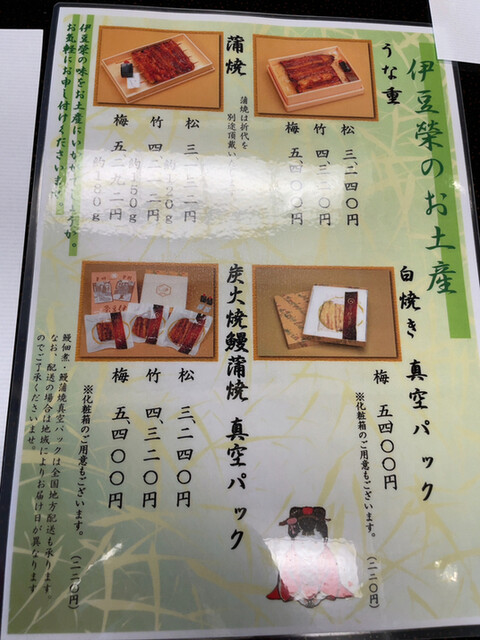 伊豆榮のお土産
うな重
松 三、二四〇円
竹 四、三二〇円
梅 五、四〇〇円
蒲焼
蒲焼は折代を
別途頂戴い
松 三、
約120g
竹 四、
約150g
梅 五、二九二円
約180g
伊豆榮の味をお土産にいかが
お気軽にお申し付けください
白焼き 真空パック
梅 五、四〇〇円
※化粧箱のご用意もございます。(二二〇円)
炭火焼鰻蒲焼 真空パック
松 三、二四〇円
竹 四、三二〇円
梅 五、四〇〇円
※化粧箱のご用意もございます。(二二〇円)
鰻佃煮・鰻蒲焼真空パックは全国地方配送も承ります。
なお、配送の場合は地域によりお届け日が異なります
のでご了承くださいませ。